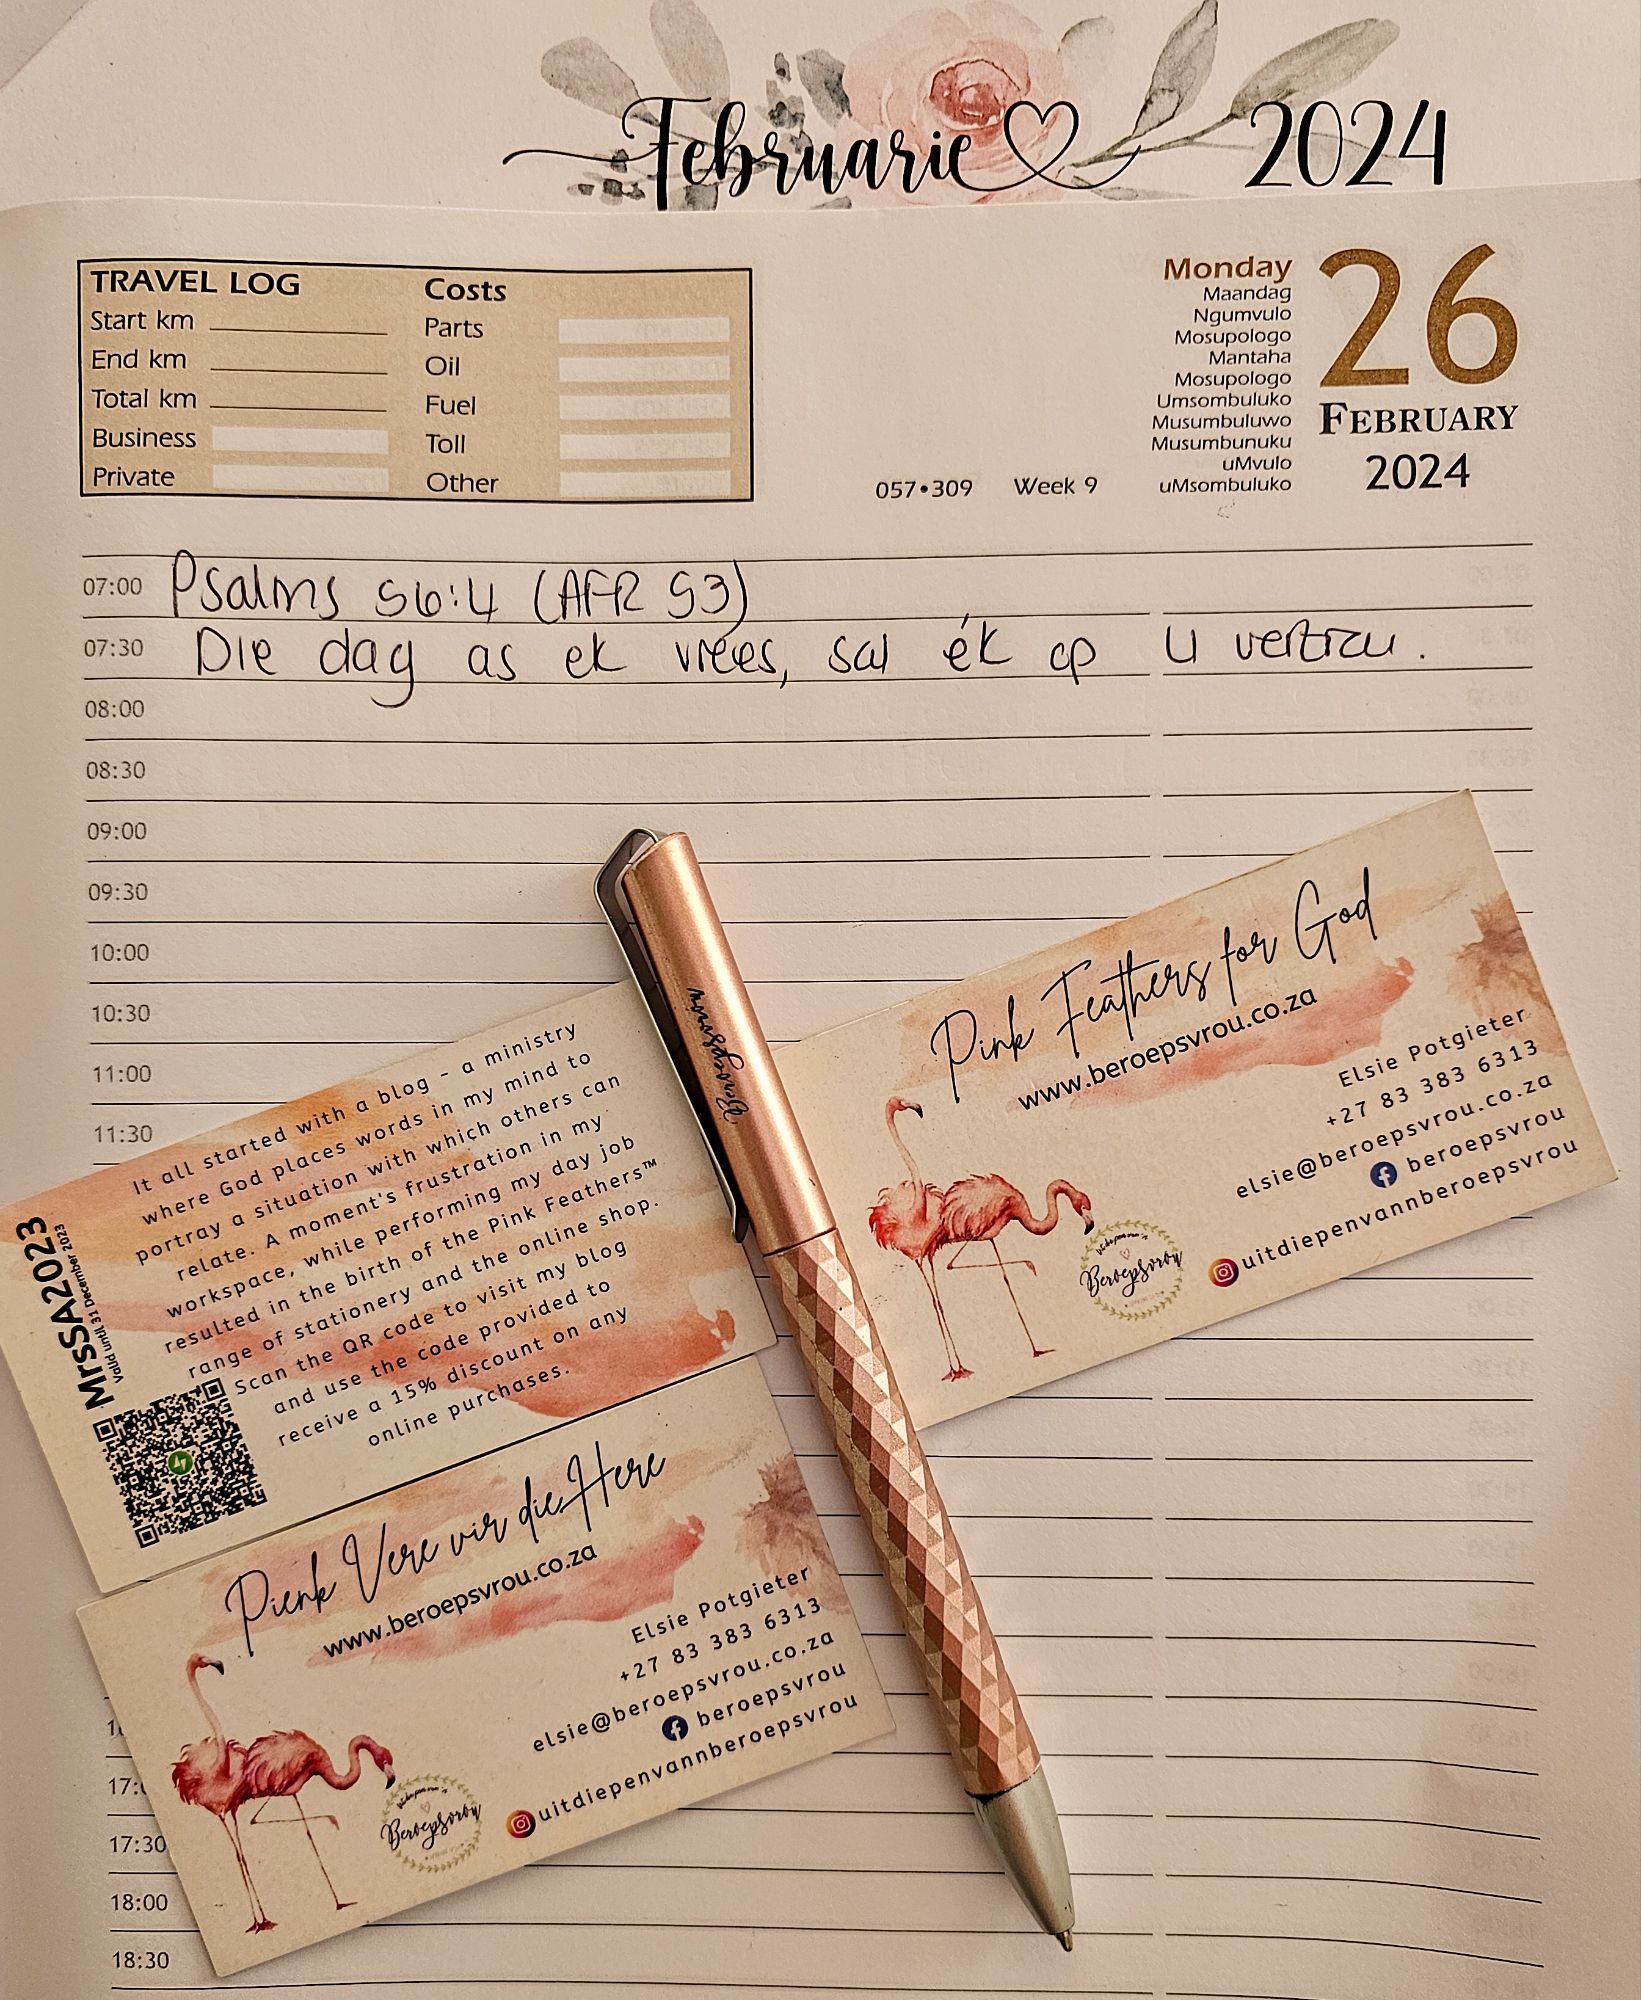 Februarie 2024
TRAVEL LOG
Costs
Start km
Parts
End km
Oil
Total km
Fuel
Business
Toll
Private
Other
057•309 Week 9
Monday
Maandag
Ngumvulo
Mosupologo
Mantaha
Mosupologo
Umsombuluko
Musumbuluwo
Musumbunuku
uMvulo
uMsombuluko
26
FEBRUARY
2024
07:00 Psalms 56:4 (AFR 53)
07:30 Die dag as ek vrees, sal ék op U vertrou.
08:00
08:30
09:00
09:30
10:00
10:30
11:00
11:30
17:30
18:00
18:30
Beroepsvrou
Pink Feathers for God
www.beroepsvrou.co.za
Elsie Potgieter
+27 83 383 6313
elsie@beroepsvrou.co.za
beroepsvrou
uitdiepenvannberoepsvrou
Beroepsvrou
It all started with a blog - a ministry
where God places words in my mind to
portray a situation with which others can
relate. A moment's frustration in my
workspace, while performing my day job
resulted in the birth of the Pink Feathers™
range of stationery and the online shop.
Scan the QR code to visit my blog
and use the code provided to
receive a 15% discount on any
online purchases.
MrsSA2023
Valid until 31 December 2023
Pienk Vere vir die Here
www.beroepsvrou.co.za
Elsie Potgieter
+27 83 383 6313
elsie@beroepsvrou.co.za
beroepsvrou
uitdiepenvannberoepsvrou
Beroepsvrou